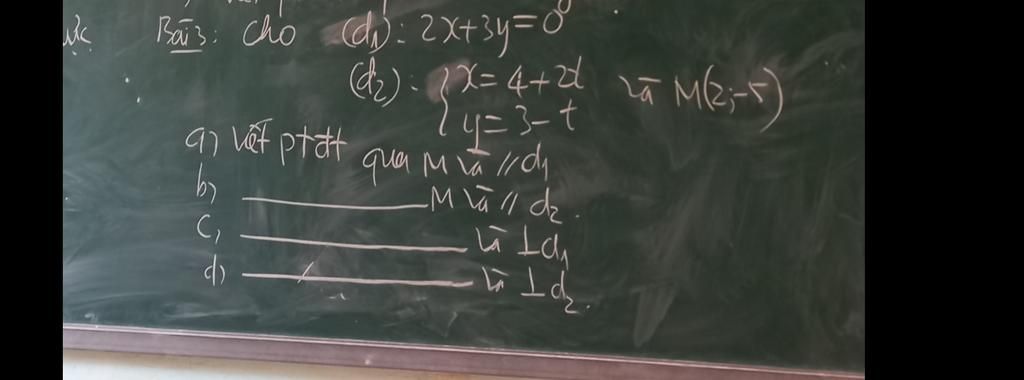 Bài 3: Cho (d₁): 2x+3y=0
(d₂): { x= 4+2t và M(2;-5)
y= 3-t
a) Viết ptđt qua M và // d₁
b) ________ M và // d₂.
c, ________ và ⊥ d₁
d) ________ và ⊥ d₂.